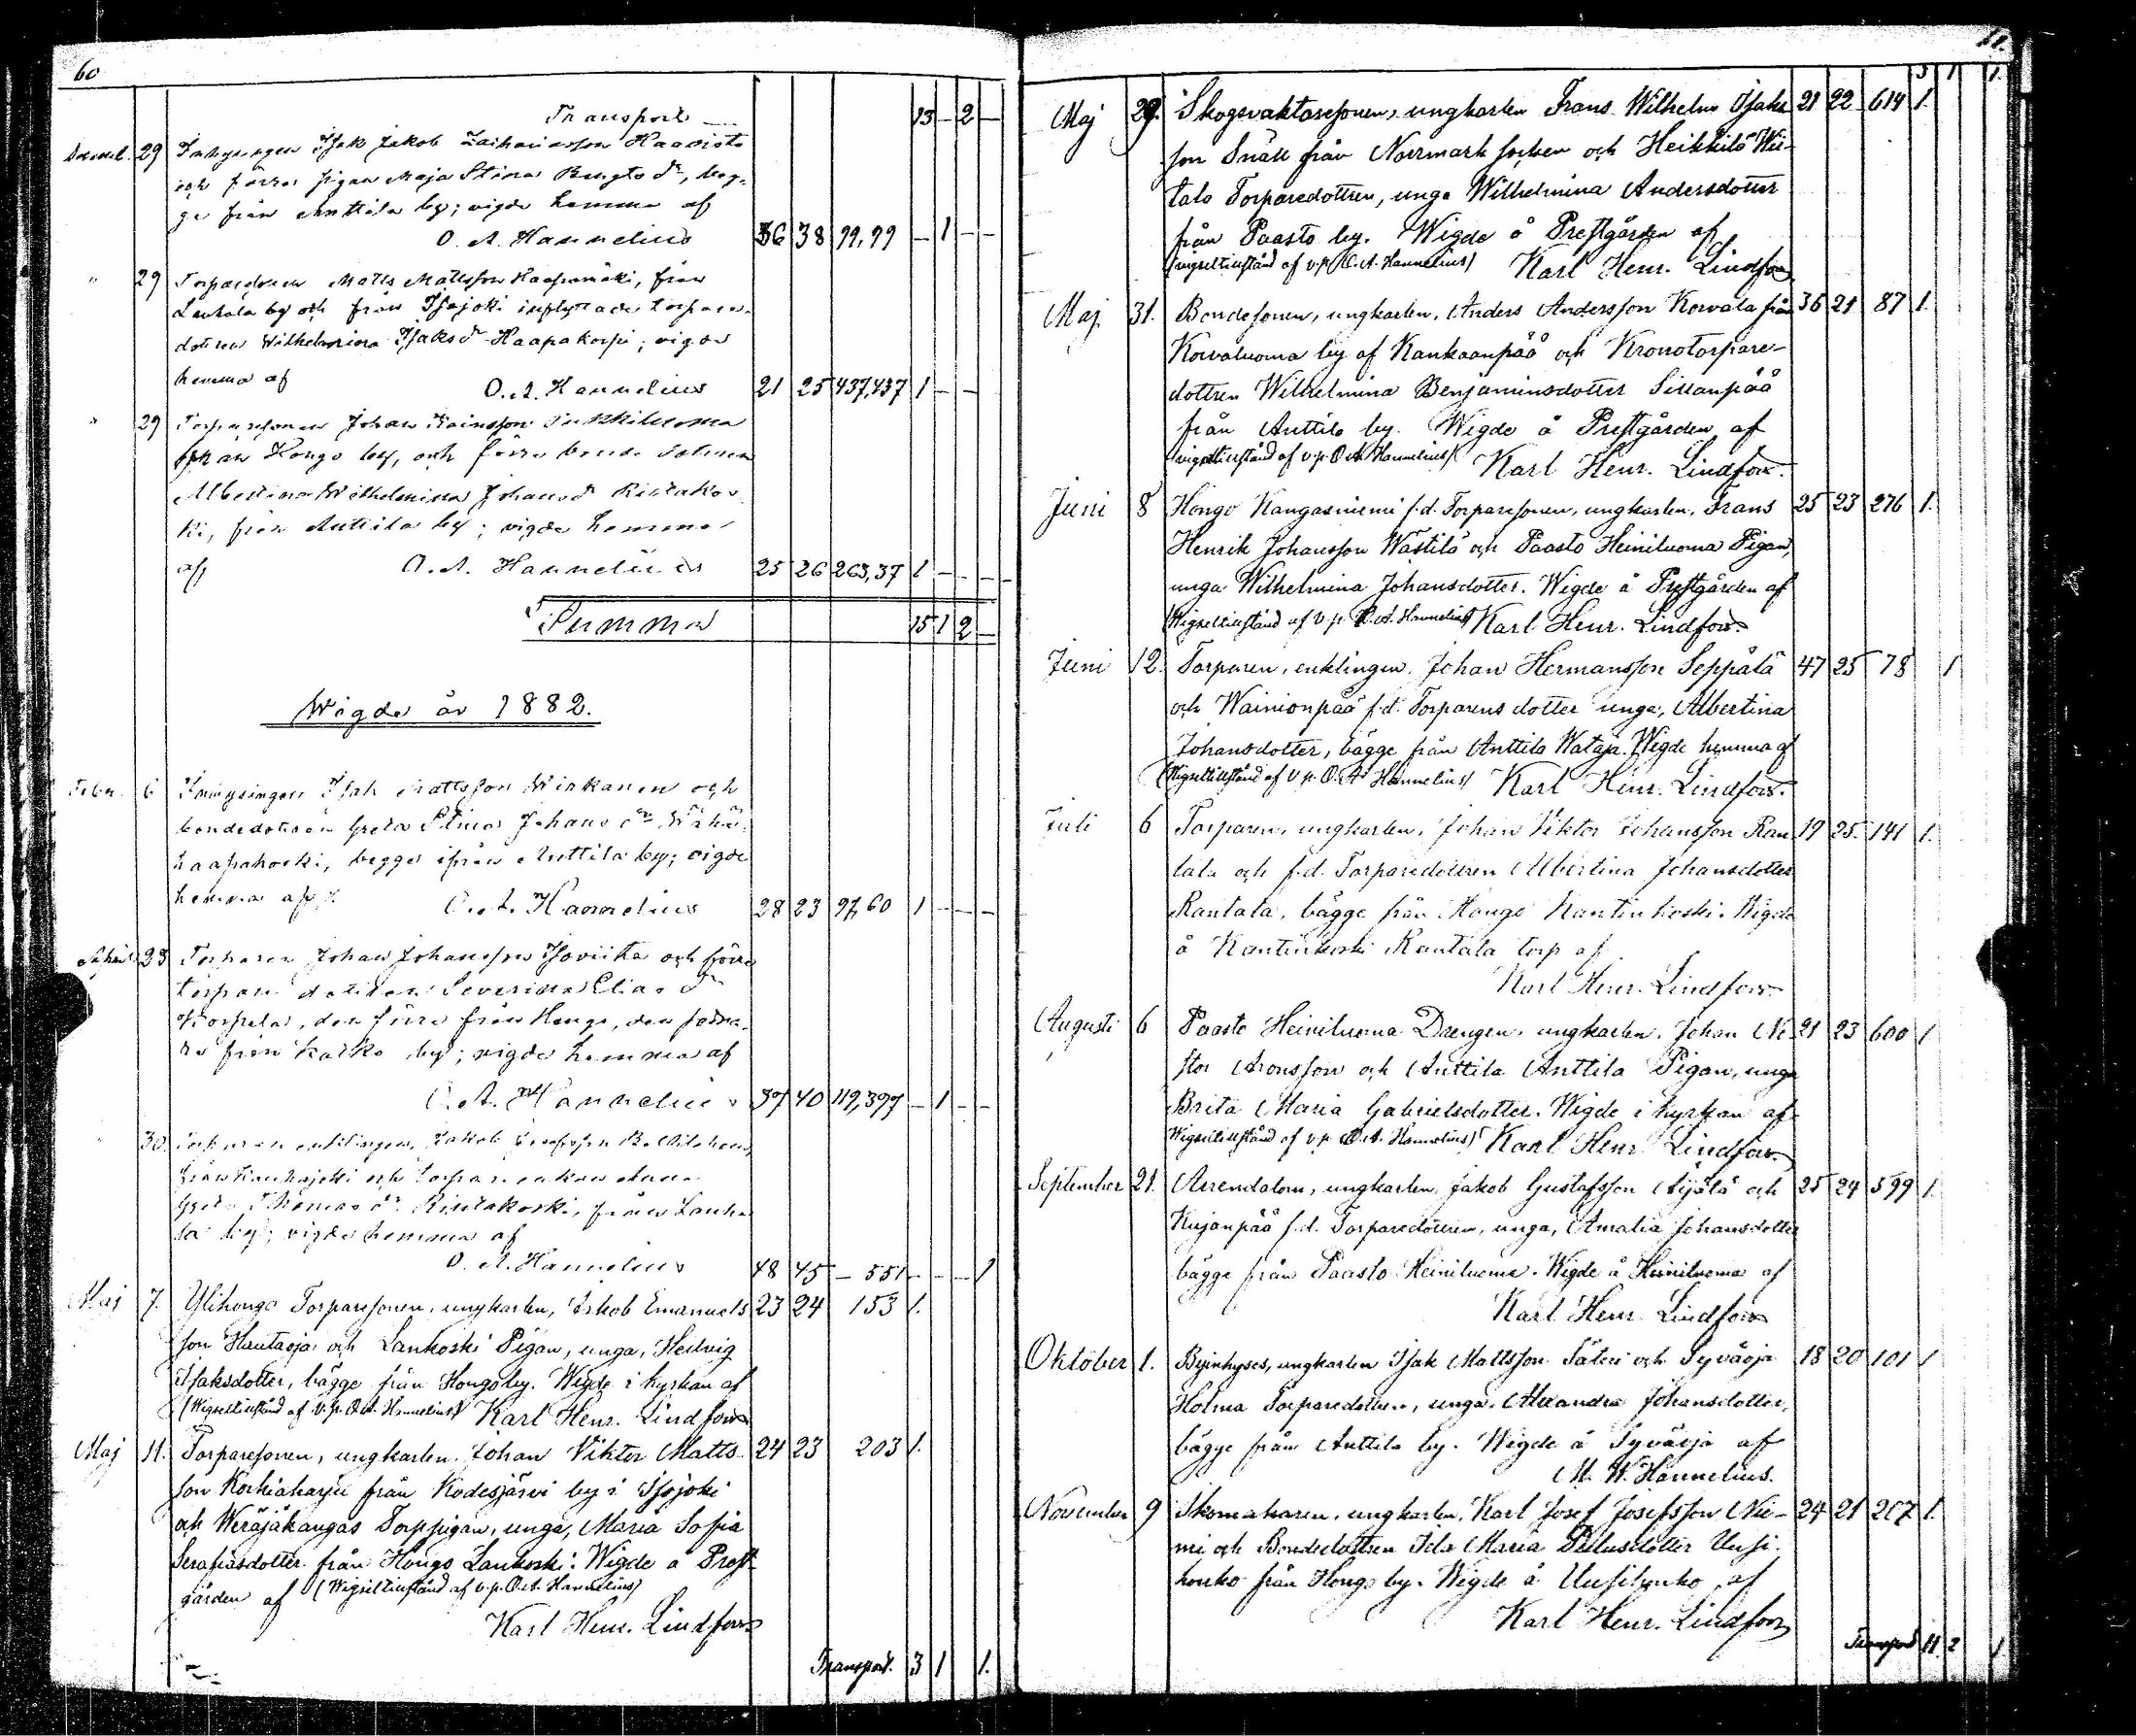 60
Transport 13 – 2 –
29 Inhysingen Isak Jakob Zachariasson Haavisto
och förra pigan Maja Stina Bengts dr, beg-
ge från Anttila by; vigde hemma af
O. A. Hannelius 36 38 99,99 – 1 – –
" 29 Matts Mattsson Haapamäki, från
Lauhala by och från Isojoki inflyttade torpare-
dottren Wilhelmina Isaksd. Haapakoski; vigde
hemma af O. A. Hannelius 21 25 437,437 1 – –
" 29 Torparesonen Johan
från Hongo by, och förra bonde dottren
Albertina Wilhelmina Johansd. Rintakos-
ki, från Anttila by; vigde hemma
af O. A. Hannelius 25 26 263,37 1 – – –
Summa 15 1 2 –
Wigde år 1882.
Febr. 6 Inhysingen Isak Mattsson Wirkanen och
bondedottren Greta Stina Johans dr Wähä-
haapakoski, begge ifrån Anttila by; vigde
hemma af O. A. Hannelius 28 23 97,60 1 – – –
23 Torparen Johan Johansson Isoviita och förra
torpare dottren Severina Elias dr
Korpela, den förre från Hongo, den sedna-
re från Karko by; vigde hemma af
O. A. Hannelius 37 40 119,397 – 1 – –
30. Torparen enklingen Jakob
från Kauhajoki och torpare enkan Anna
Greta Thomas dr Rintakoski, från Lauha-
la by; vigde hemma af
O. A. Hannelius 48 45 – 551 – – – 1
Maj 7. Ylihongo Torparesonen, ungkarlen, Jakob Emanuels- 23 24 153 1.
son Hautaoja och Lankoski Pigan, unga, Hedvig
Isaksdotter, bägge från Hongo by. Wigde i kyrkan af
(Wigseltillstånd af v.p. O.A. Hannelius) Karl Henr. Lindfors
Maj 11. Torparesonen, ungkarlen, Johan Viktor Matts- 24 23 203 1.
son Korhiaharju från Kodesjärvi by i Isojoki
och Weräjäkangas Torppigan, unga, Maria Sofia
Serafiasdotter från Hongo Lankoski. Wigde å Prest-
gården af (Wigseltillstånd af v.p. O.A. Hannelius)
Karl Henr. Lindfors
Transport. 3 1 1.
3 1 1.
Maj 29. Skogsvaktaresonen, ungkarlen Frans Wilhelm Isaks- 21 22 614 1.
son Snäll från Norrmark socken och Heikkilä Wii-
tala Torparedottren, unga Wilhelmina Andersdotter
från Paasto by. Wigde å Prestgården af
(vigseltillstånd af v.p. O.A. Hannelius) Karl Henr. Lindfors
Maj 31. Bondesonen, ungkarlen, Anders Andersson Korvala från 36 21 87 1.
Korvaluoma by af Kankaanpää och Kronotorpare-
dottren Wilhelmina Benjaminsdotter Sillanpää
från Anttila by. Wigde å Prestgården af
(vigseltillstånd af v.p. O.A. Hannelius) Karl Henr. Lindfors.
Juni 8 Hongo Kangasniemi f.d. Torparesonen, ungkarlen, Frans 25 23 276 1.
Henrik Johansson Wästilä och Paasto Heiniluoma Pigan,
unga Wilhelmina Johansdotter. Wigde å Prestgården af
(Wigseltillstånd af v.p. O.A. Hannelius) Karl Henr. Lindfors.
Juni 12. Torparen, enklingen, Johan Hermansson Seppälä 47 25 78 1
och Wainionpää f.d. Torparens dotter unga, Albertina
Johansdotter, bägge från Anttila Wataja. Wigde hemma af
(Wigseltillstånd af v.p. O.A. Hannelius) Karl Henr. Lindfors.
Juli 6 Torparen, ungkarlen, Johan Viktor Johansson Ran- 19 25. 141 1.
tala och f.d. Torparedottren Albertina Johansdotter
Rantala, bägge från Hongo Kantinkoski. Wigde
å Kantinkoski Rantala torp af
Karl Henr. Lindfors
Augusti 6 Paasto Heiniluoma Drengen, ungkarlen, Johan Ne- 21 23 600 1
stor Aronsson och Anttila Anttila Pigan, unga
Brita Maria Gabrielsdotter. Wigde i kyrkan af
Wigseltillstånd af v.p. O.A. Hannelius) Karl Henr. Lindfors.
September 21. Arrendatorn, ungkarlen, Jakob Gustafsson Äijälä och 25 24 599 1.
Kujanpää f.d. Torparedottren, unga, Amalia Johansdotter
bägge från Paasto Heiniluoma. Wigde å Heiniluoma af
Karl Henr. Lindfors
Oktober 1. Byinhyses, ungkarlen Isak Mattsson Säteri och Syväoja 18 20 101 1
Holma Torparedottren, unga, Alexandra Johansdotter,
bägge från Anttila by. Wigde å Syväoja af
M. W. Hannelius.
November 9 Skomakaren, ungkarlen, Karl Josef Josefsson Nie- 24 21 207 1.
mi och Bondedottren Ida Maria Uusi-
honko från Hongo by. Wigde å Uusihonko af
Karl Henr. Lindfors
Transport 11. 2 1